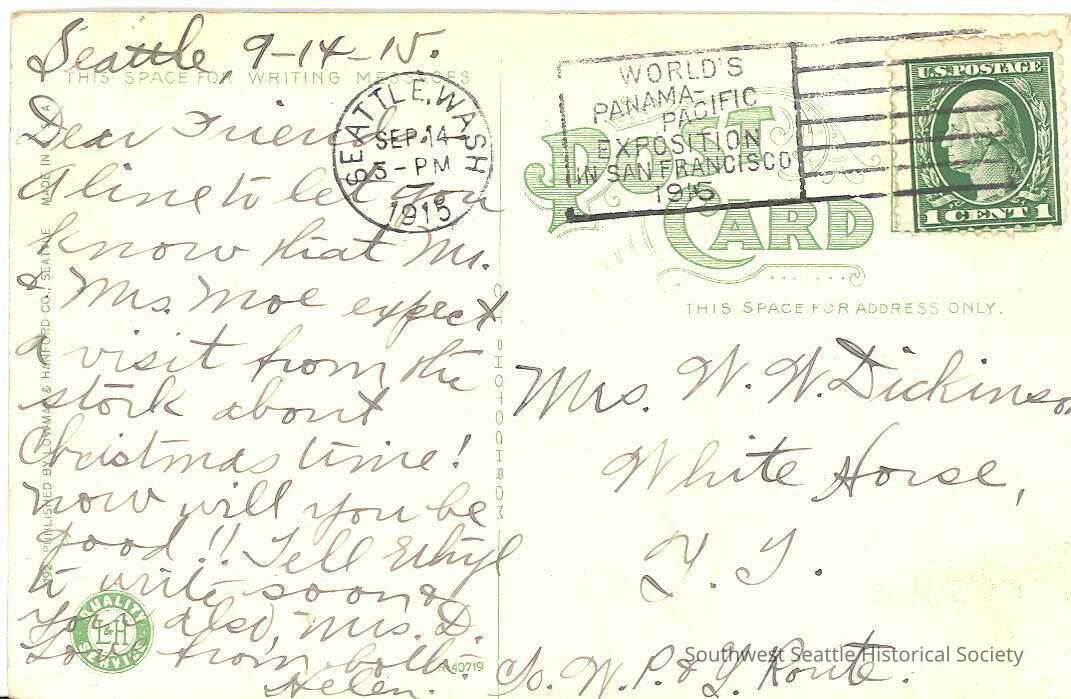 Seattle, 9-14-15.
THIS SPACE FOR WRITING MESSAGES
Dear Friend:
A line to let you
know that Mr.
& Mrs. Moe expect
a visit from the
stork about
Christmas time!
Now will you be
good!! Tell Ethyl
to write soon &
you also, Mrs. D.
Love from both.
Helen.
SEATTLE, WASH
SEP. 14
3-PM
1915
WORLD'S
PANAMA-
PACIFIC
EXPOSITION
IN SAN FRANCISCO
1915
U.S. POSTAGE
1 CENT 1
POST
CARD
THIS SPACE FOR ADDRESS ONLY.
Mrs. W. W. Dickinson
White Horse,
Y. T.
W. P. & Y. Route.
192 PUBLISHED BY LOWMAN & HANFORD CO., SEATTLE MADE IN U.S.A
PHOTOCHROM
QUALITY
L&H
SERVICE
R-40719
Southwest Seattle Historical Society